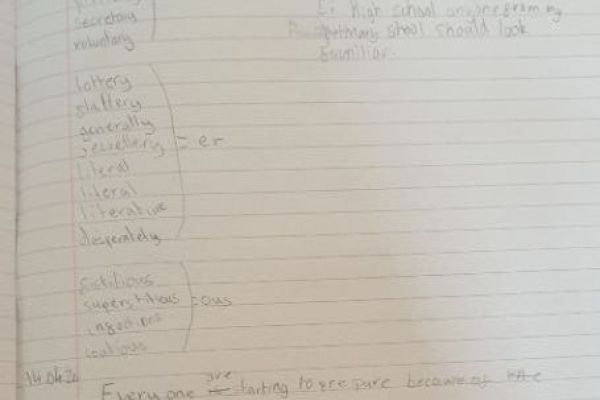 secretary
voluntary
High school
school should look
familiar.
lottery
flattery
generally
jewellery = er
literal
literal
literative
desperately
fictitious
superstitious = ous
cautious
14.04.20
Every one are starting to prepare because of the